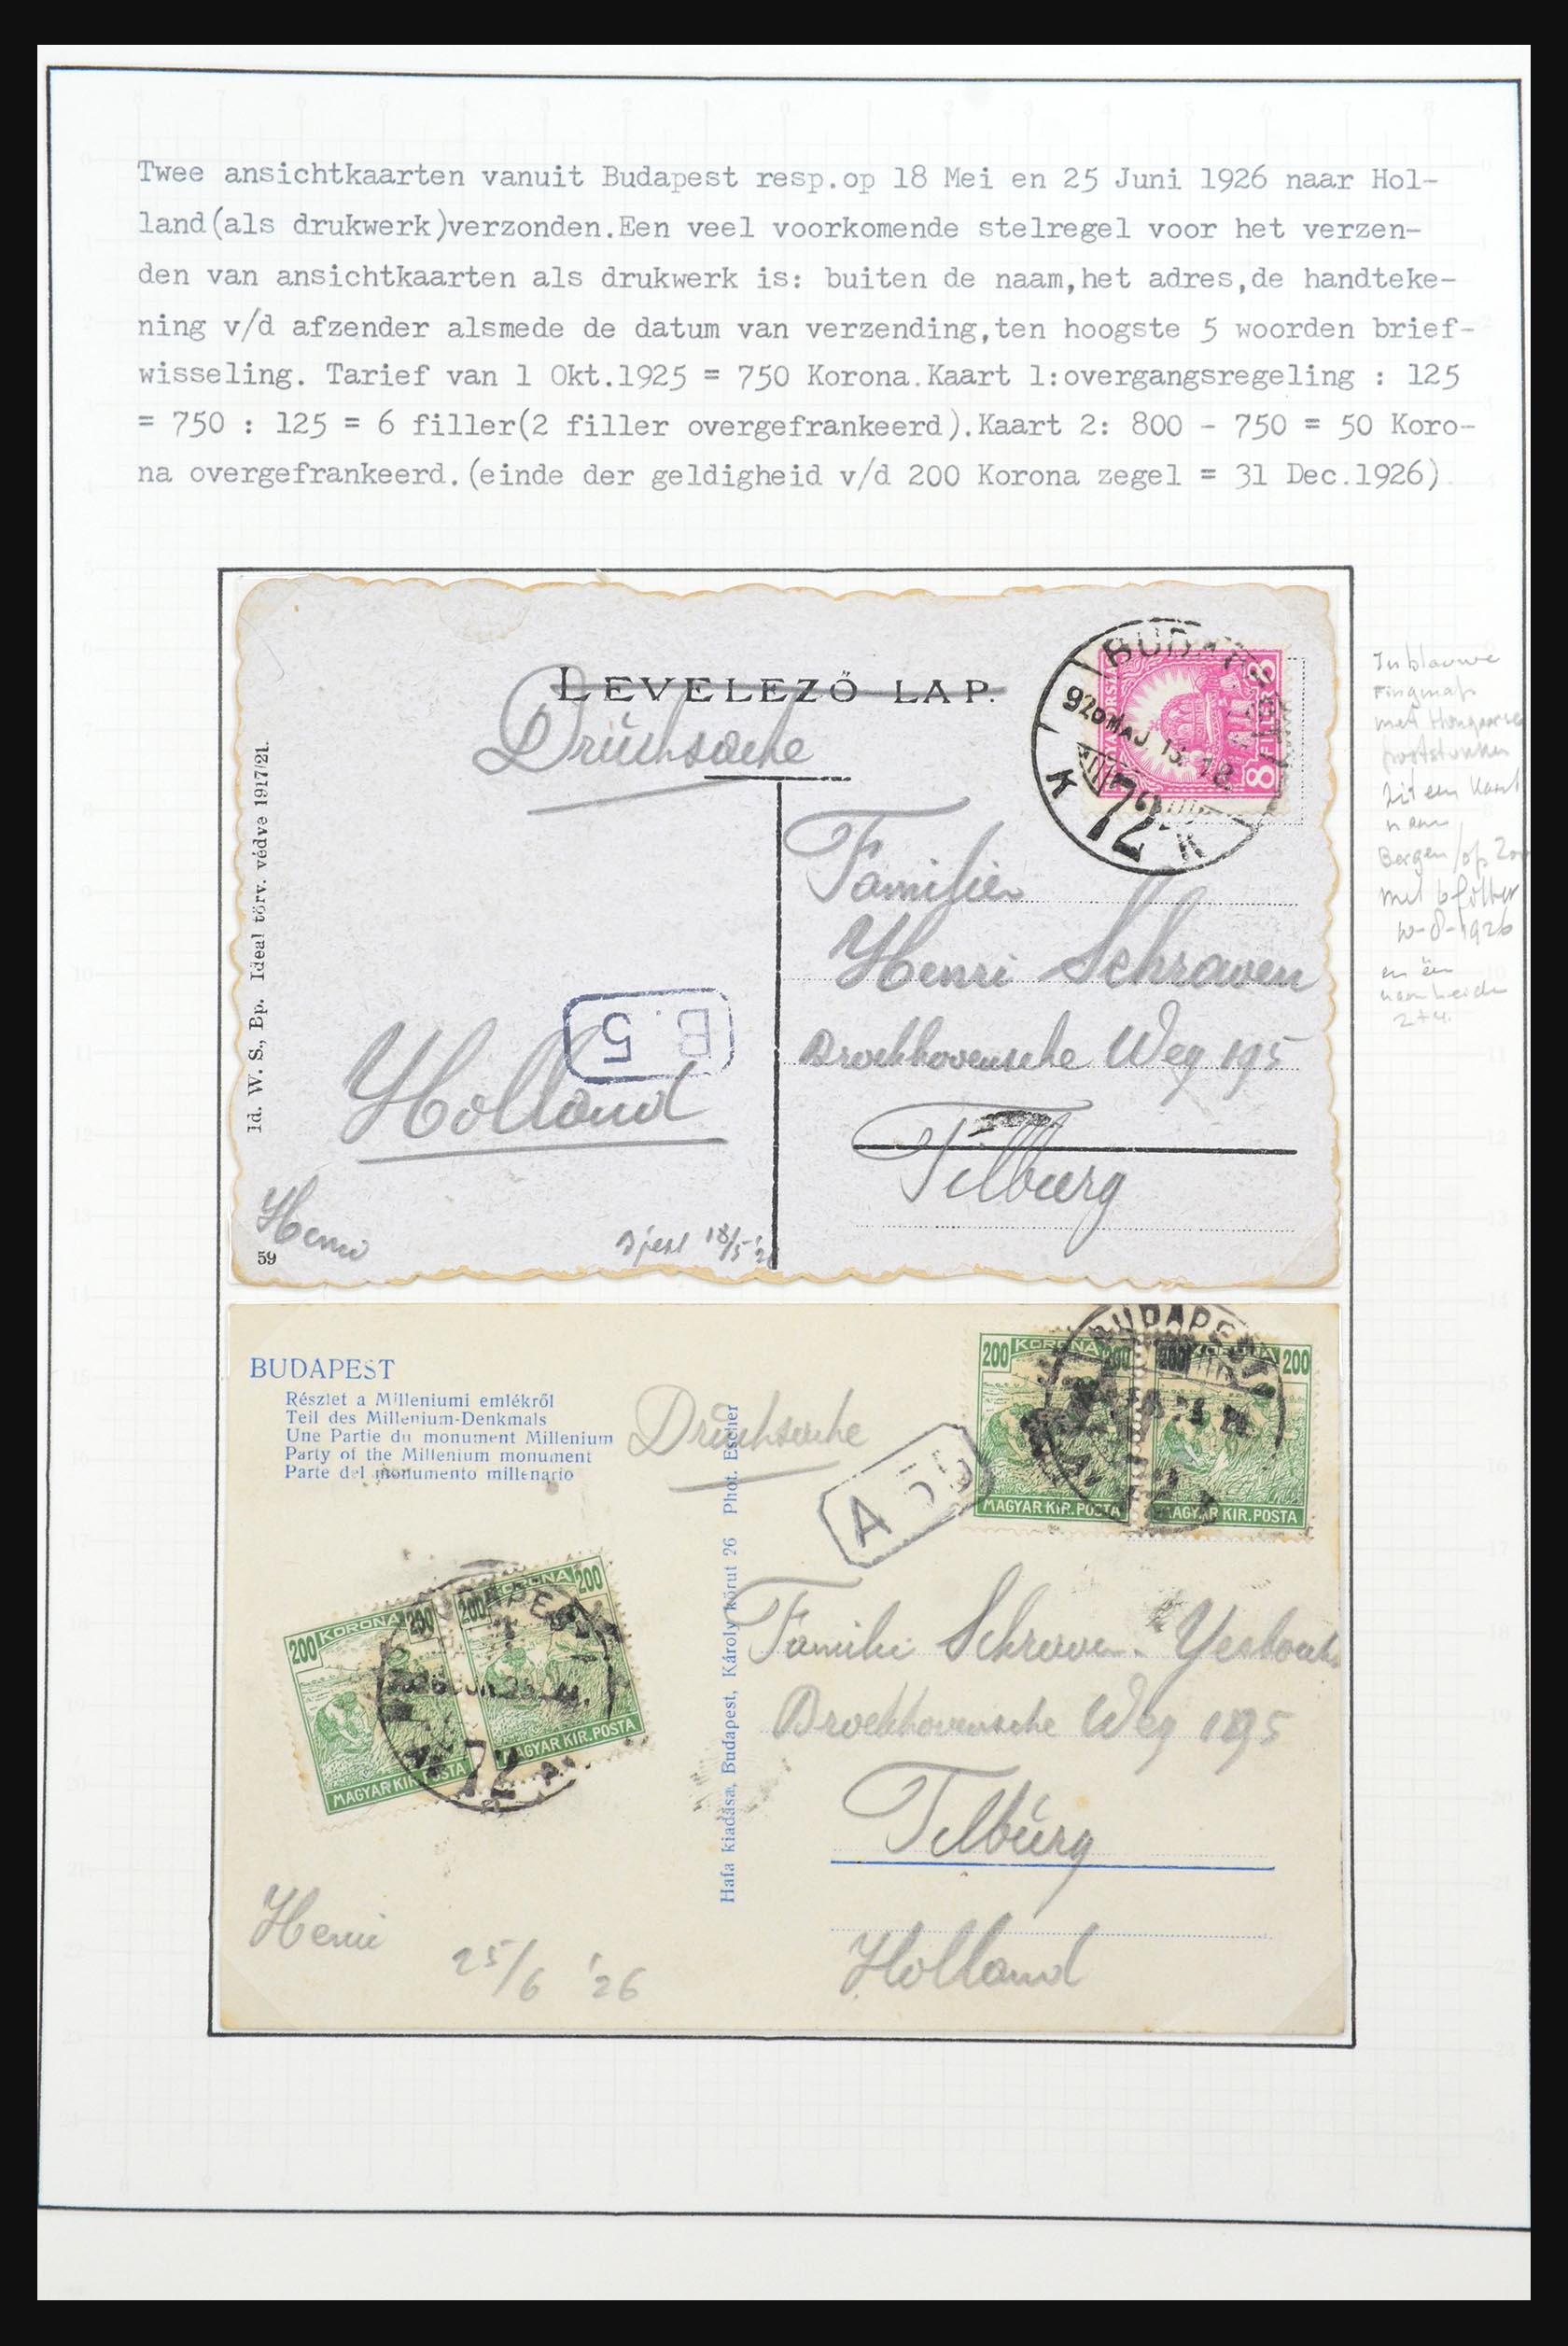 Twee ansichtkaarten vanuit Budapest resp.op 18 Mei en 25 Juni 1926 naar Hol-
land(als drukwerk)verzonden.Een veel voorkomende stelregel voor het verzen-
den van ansichtkaarten als drukwerk is: buiten de naam,het adres,de handteke-
ning v/d afzender alsmede de datum van verzending,ten hoogste 5 woorden brief-
wisseling. Tarief van 1 Okt.1925 = 750 Korona.Kaart 1:overgangsregeling : 125
= 750 : 125 = 6 filler(2 filler overgefrankeerd).Kaart 2: 800 - 750 = 50 Koro-
na overgefrankeerd.(einde der geldigheid v/d 200 Korona zegel = 31 Dec.1926)
LEVELEZŐ LAP.
Drucksache
Id. W. S., Bp. Ideal törv. védve 1917/21.
BUDAPEST
8 FILLÉR 8
926 MAJ. 18. 18
K 72 K
Familien
Henri Schraven
Broekhovensche Weg 195
Tilburg
B. 5
Holland
Henri
59
Bpest 18/5 '26
In blauwe
ringmap
met Hongaarse
poststukken
zit een kaart
naar
Bergen/op Zoom
met 6 filler
10-8-1926
en én
2+4.
BUDAPEST
Részlet a Milleniumi emlékről
Teil des Millenium-Denkmals
Une Partie du monument Millenium
Party of the Millenium monument
Parte del monumento millenario
Drucksache
A 55
Hafa kiadása, Budapest, Károly körut 26 Phot. Escher
200 KORONA 200
MAGYAR KIR. POSTA
200 KORONA 200
MAGYAR KIR. POSTA
BUDAPEST
200 KORONA 200
MAGYAR KIR. POSTA
200 KORONA 200
MAGYAR KIR. POSTA
BUDAPEST
72
Familie Schraven
Broekhovensche Weg 195
Tilburg
Holland
Henri
25/6 '26